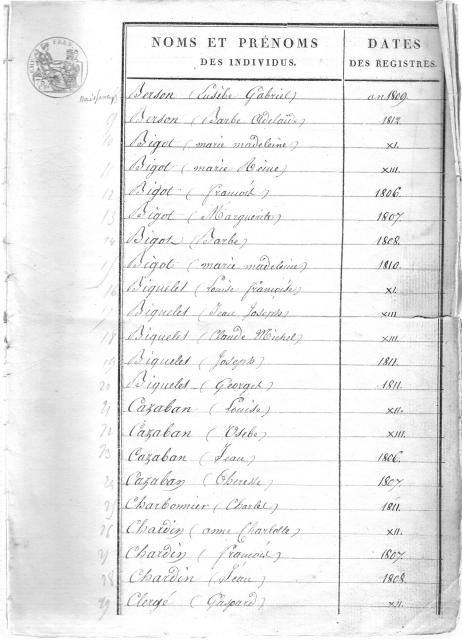 NOMS ET PRÉNOMS
DES INDIVIDUS.
DATES
DES REGISTRES.
Berson (Eusèbe Gabriel) an 1809.
9 Berson (Barbe Adelaïde) 1812
10 Bigot (marie madeleine) XI.
11 Bigot (marie Reine) XIII.
12 Bigot (François) 1806.
13 Bigot (Marguerite) 1807
14 Bigot (Barbe) 1808.
15 Bigot (marie madeleine) 1810.
16 Biquelet (Louise Françoise) XI.
17 Biquelet (Jean Joseph) XIII
18 Biquelet (Claude Michel) XIII.
19 Biquelet (Joseph) 1811.
20 Biquelet (Georges) 1811.
21 Cazaban (Louise) XII.
22 Cazaban (Usebe) XIII.
23 Cazaban (Jean) 1806.
24 Cazaban (Therese) 1807
25 Charbonnier (Charles) 1811.
26 Chardin (anne Charlotte) XII.
27 Chardin (François) 1807
28 Chardin (Jean) 1808.
29 Clergé (Gaspard) XII.